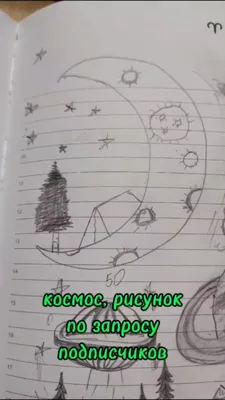 50
космос, рисунок
по запросу
подписчиков